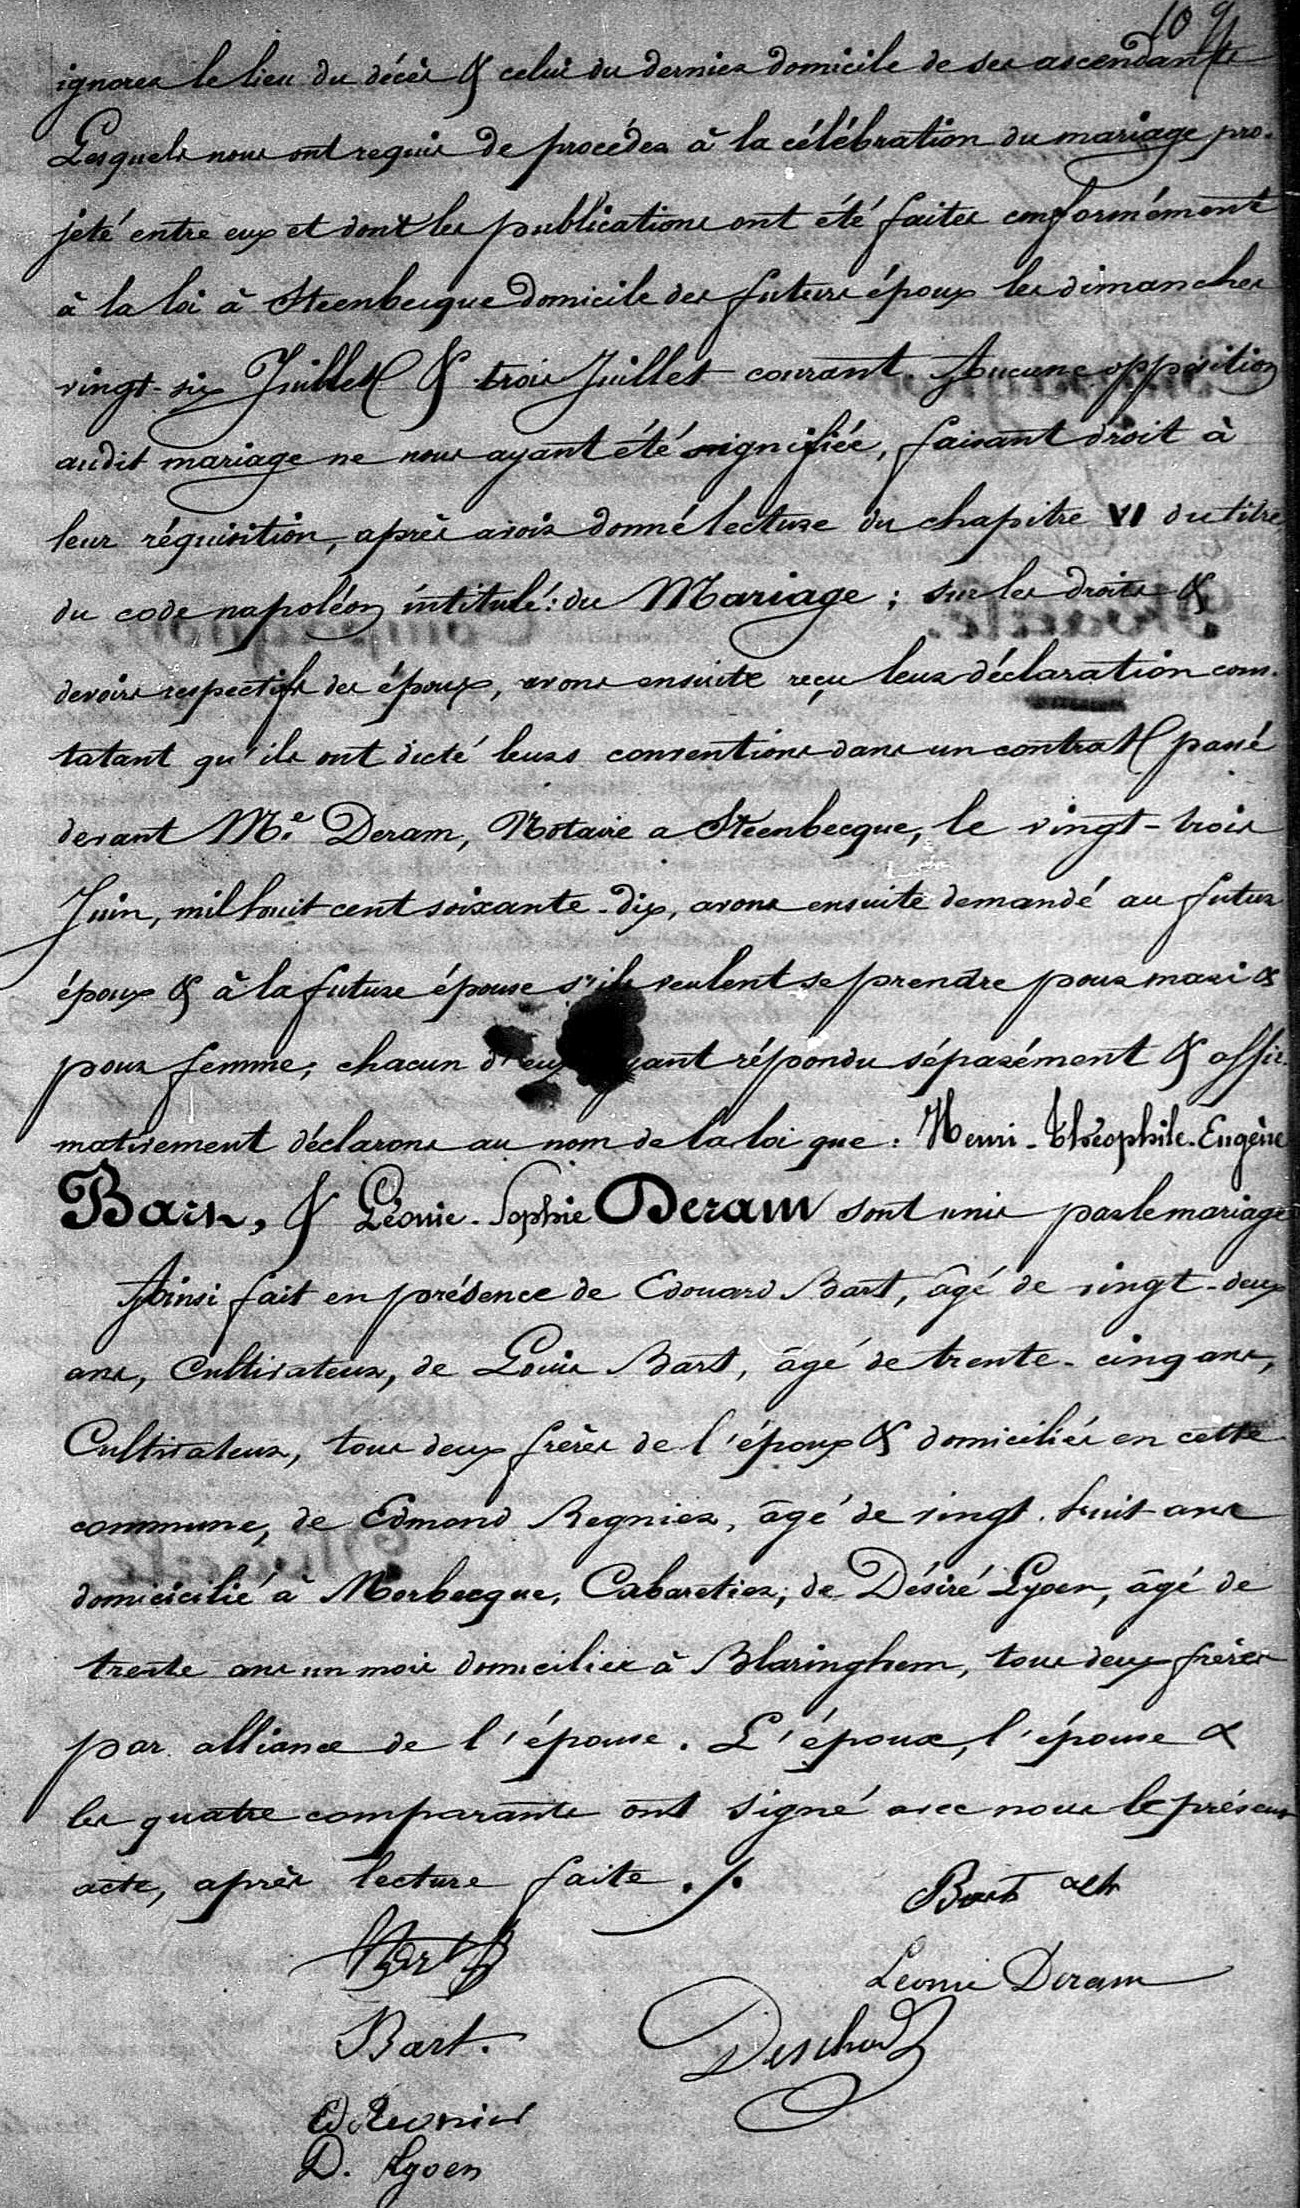 10
ignorer le lieu du décès & celui du dernier domicile de ses ascendants
Lesquels nous ont requis de procéder à la célébration du mariage pro-
jeté entre eux et dont les publications ont été faites conformément
à la loi à Steenbecque domicile des futurs époux les dimanches
vingt-six Juillet & trois Juillet courant. Aucune opposition
audit mariage ne nous ayant été signifiée, faisant droit à
leur réquisition, après avoir donné lecture du chapitre VI du titre
du code napoléon intitulé: du Mariage; sur les droits &
devoirs respectifs des époux, avons ensuite reçu leur déclaration cons-
tatant qu'ils ont dicté leurs conventions dans un contrat passé
devant Me. Deram, Notaire a Steenbecque, le vingt-trois
Juin, mil huit cent soixante-dix, avons ensuite demandé au futur
époux & à la future épouse s'ils veulent se prendre pour mari &
pour femme; chacun d'eux ayant répondu séparément & affir-
mativement déclarons au nom de la loi que: Henri-Théophile-Eugène
Bart, & Léonie-Sophie Deram sont unis par le mariage
Ainsi fait en présence de Edouard Bart, âgé de vingt-deux
ans, Cultivateur, de Louis Bart, âgé de trente-cinq ans,
Cultivateur, tous deux frères de l'époux & domiciliés en cette
commune, de Edmond Regnier, âgé de vingt-huit ans
domicicilié à Morbecque, Cabaretier; de Désiré Lyoen, âgé de
trente ans un mois domicilier à Blaringhem, tous deux frères
par alliance de l'épouse. L'époux, l'épouse &
les quatre comparants ont signé avec nous le présent
acte, après lecture faite ./.
Bart
Bart
Leonie Deram
Bart.
Deschodt
D. Lyoen